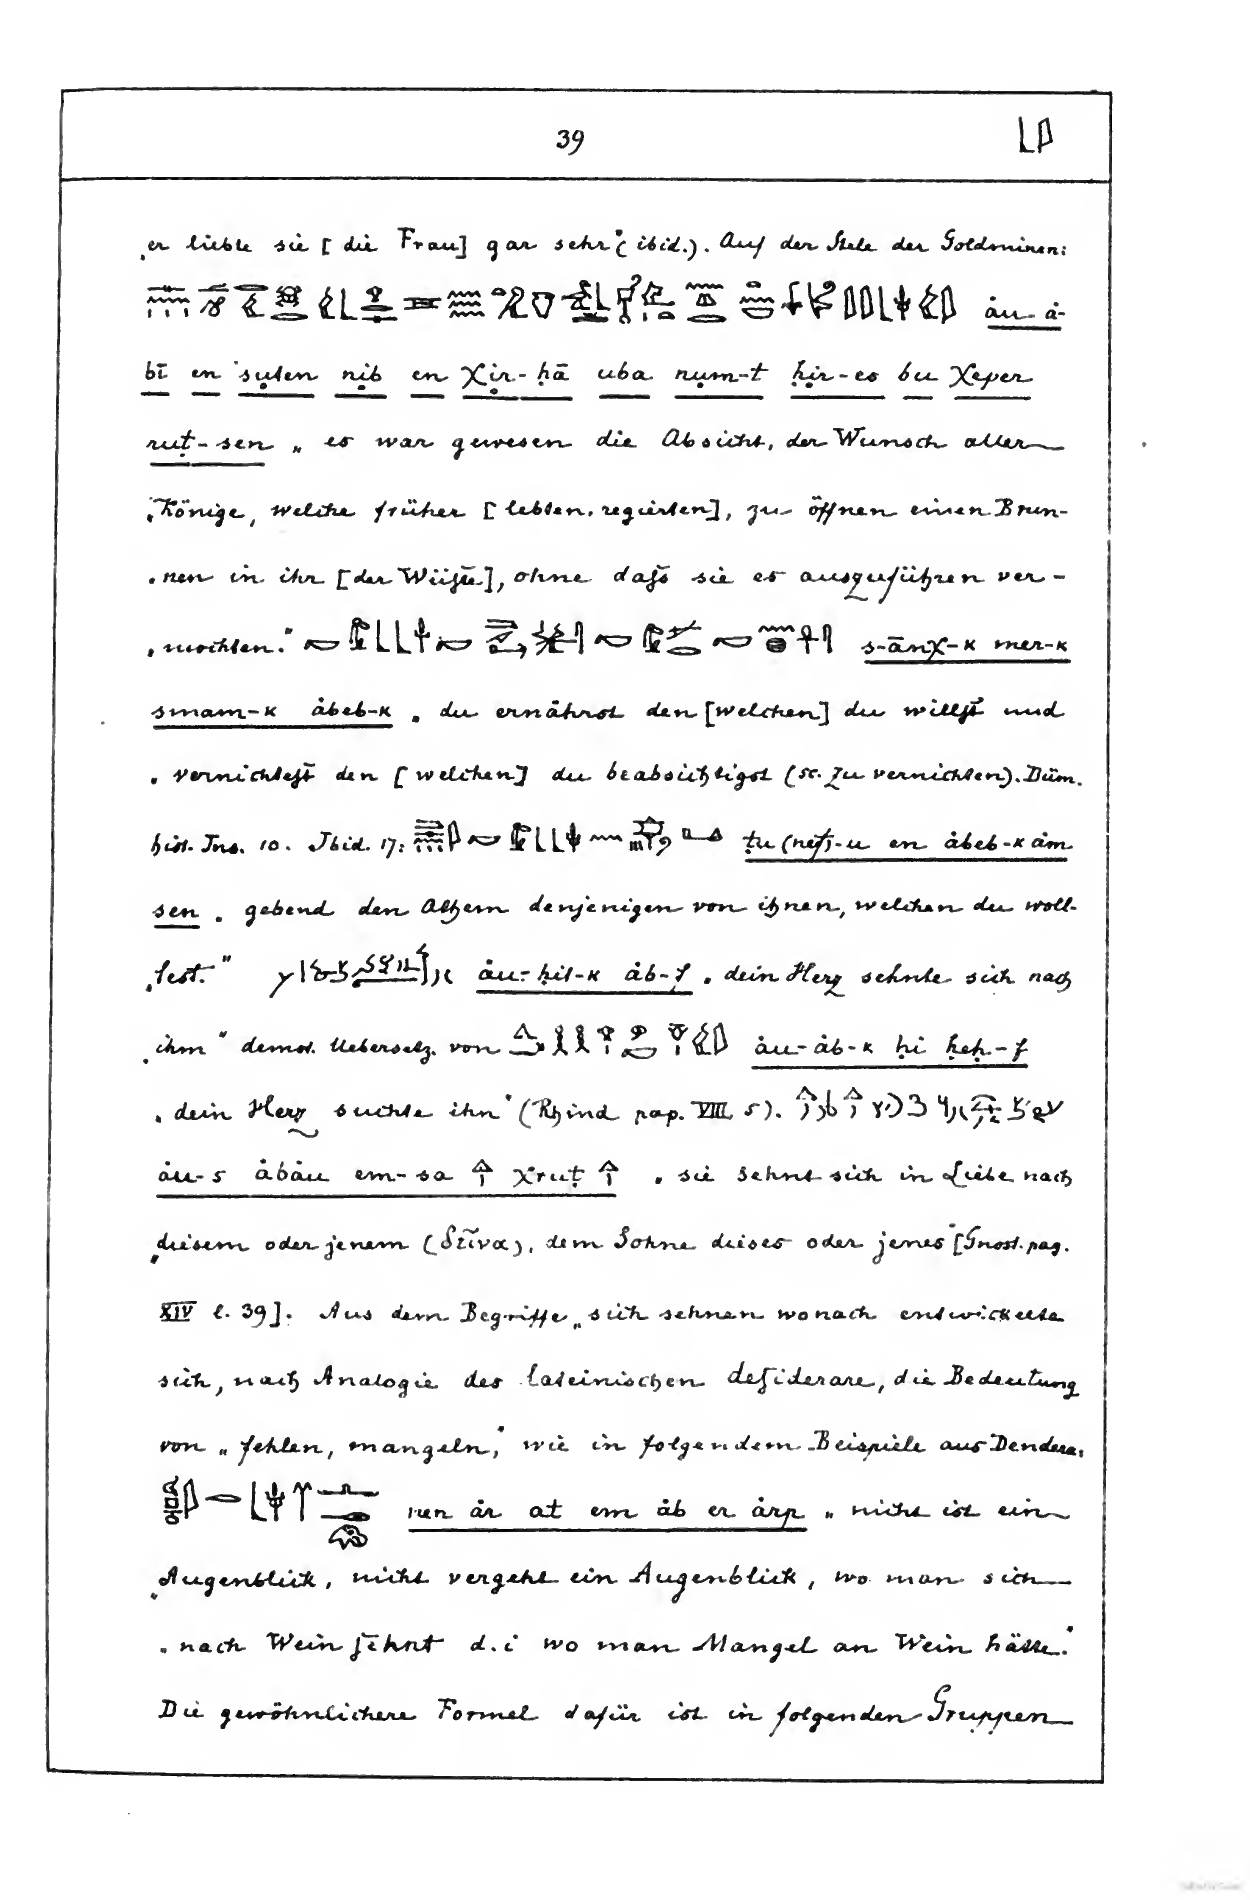 39
„er liebte sie [die Frau] gar sehr“ (ibid.). Auf der Stele der Goldminen:
åu-å-
bī en suten nib en χir-ḥā uba num-t ḥir-es bu χeper
ruṭ-sen „es war gewesen die Absicht, der Wunsch aller
„Könige, welche früher [lebten, regierten], zu öffnen einen Brun-
„nen in ihr [der Wüste], ohne daſs sie es auszuführen ver-
„mochten.“ s-ānχ-k mer-k
smam-k åbeb-k „du ernährst den [welchen] du willst und
„vernichtest den [welchen] du beabsichtigst (sc. zu vernichten). Düm.
hist. Ins. 10. Ibid. 17: ṭu (nef)-u en åbeb-k åm
sen „gebend den Athem denjenigen von ihnen, welchen du woll-
„test.“ åu-ḥit-k åb-f „dein Herz sehnte sich nach
„ihm“ demot. Uebersetz. von åu-åb-k ḥi ḥeḥ-f
„dein Herz suchte ihn“ (Rhind pap. VIII, 5).
åu-s åbåu em-sa χruṭ „sie sehnt sich in Liebe nach
„diesem oder jenem (δεῖνα), dem Sohne dieses oder jenes“ [Gnost. pag.
XIV l. 39]. Aus dem Begriffe „sich sehnen wonach entwickelte
sich, nach Analogie des lateinischen desiderare, die Bedeutung
von „fehlen, mangeln“, wie in folgendem Beispiele aus Dendera:
nen år at em åb er årp „nicht ist ein
„Augenblick, nicht vergeht ein Augenblick, wo man sich
„nach Wein sehnt d.i wo man Mangel an Wein hätte.“
Die gewöhnlichere Formel dafür ist in folgenden Gruppen